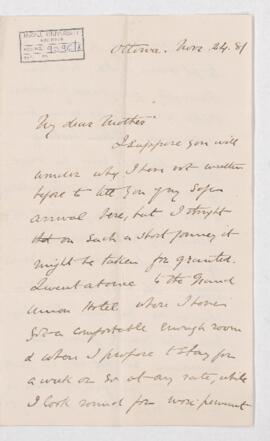 McGILL UNIVERSITY
ARCHIVES
ACC. NO.
REF.
Ottawa. Nov. 24. 81
My dear Mother
I suppose you will
wonder why I have not written
before to tell you of my safe
arrival here, but I thought
on such a short journey it
might be taken for granted.
I went at once to the Grand
Union Hotel where I have
got a comfortable enough room
& where I propose to stay for
a week or so at any rate, while
I look round for more permanent